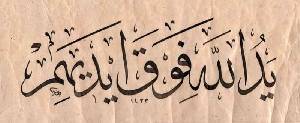 يَدُ اللَّهِ فَوْقَ أَيْدِيهِمْ
١٤٣٣